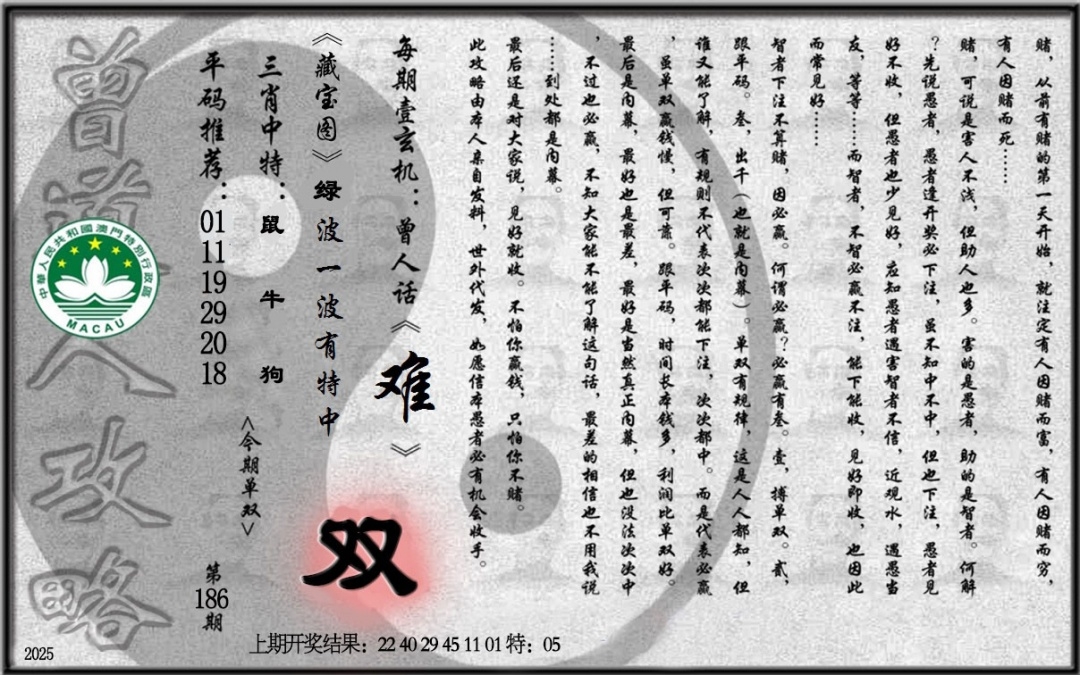 赌，从前有赌的第一天开始，就注定有人因赌而富，有人因赌而穷，
有人因赌而死……
赌，可说是害人不浅，但助人也多。害的是愚者，助的是智者。何解
？先说愚者，愚者逢开奖必下注，虽不知中不中，但也下注，愚者见
好不收，但愚者也少见好，应知愚者遇害智者不信，近观水，遇愚当
友，等等……而智者，不智必赢不注，能下能收，见好即收，也因此
而常见好……
智者下注不算赌，因必赢。何谓必赢？必赢有叁。壹，搏单双。贰，
跟平码。叁，出千（也就是内幕）。单双有规律，这是人人都知，但
谁又能了解，有规则不代表次次都能下注，次次都中。而是代表必赢
，虽单双赢钱慢，但可靠。跟平码，时间长本钱多，利润比单双好。
最后是内幕，最好也是最差，最好是当然真正内幕，但也没法次次中
，不过也必赢，不知大家能不能了解这句话，最差的相信也不用我说
……到处都是内幕。
最后还是对大家说，见好就收。不怕你赢钱，只怕你不赌。
此攻略由本人亲自发料，世外代发，如愿信本愚者必有机会收手。
每期壹玄机：曾人话《难》
《藏宝图》绿波一波有特中
双
三肖中特：鼠 牛 狗
<今期单双>
平码推荐：01 11 19 29 20 18
第186期
曾道人攻略
中華人民共和國澳門特別行政區
MACAU
上期开奖结果：22 40 29 45 11 01 特：05
2025